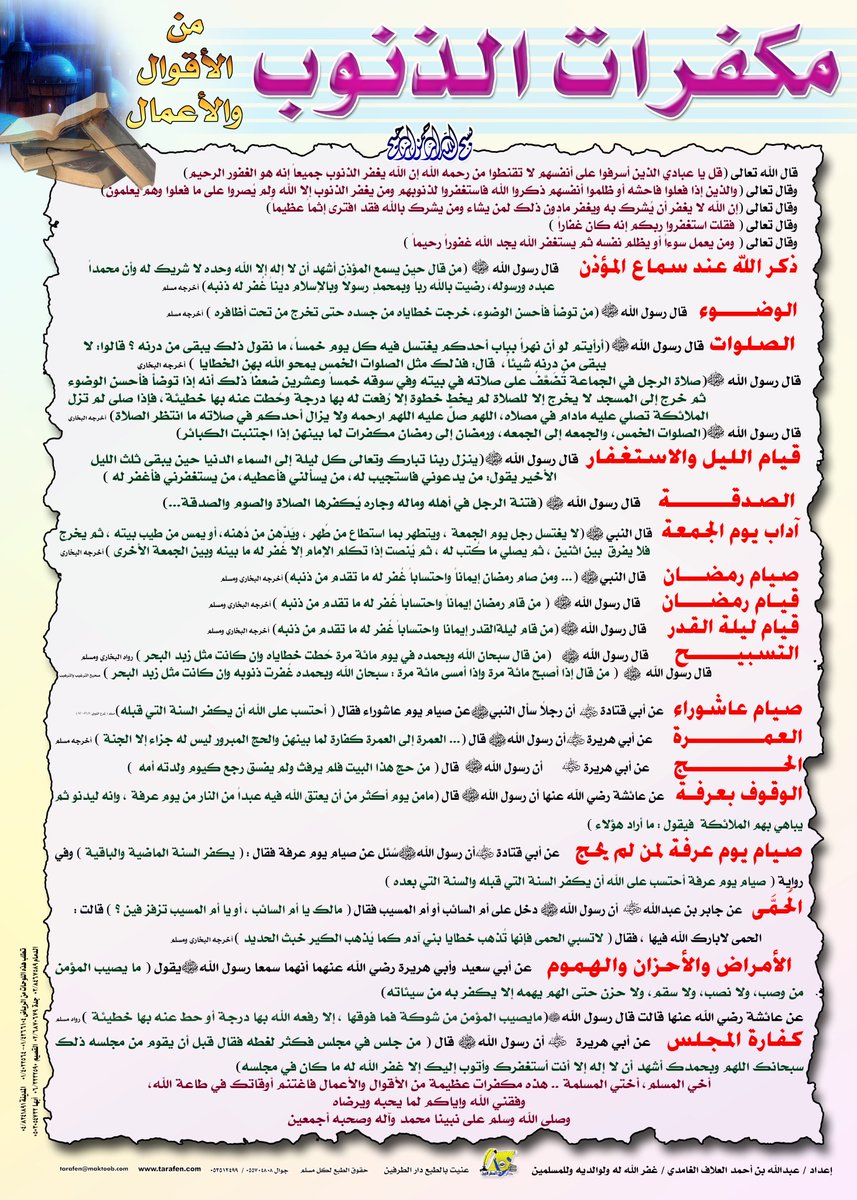 مكفرات الذنوب
من
الأقوال
والأعمال
بسم الله الرحمن الرحيم
قال الله تعالى (قل يا عبادي الذين أسرفوا على أنفسهم لا تقنطوا من رحمه الله إن الله يغفر الذنوب جميعاً إنه هو الغفور الرحيم)
وقال تعالى (والذين إذا فعلوا فاحشه أو ظلموا أنفسهم ذكروا الله فاستغفروا لذنوبهم ومن يغفر الذنوب إلا الله ولم يُصروا على ما فعلوا وهم يعلمون)
وقال تعالى (إن الله لا يغفر أن يُشرك به ويغفر مادون ذلك لمن يشاء ومن يشرك بالله فقد افترى إثماً عظيما)
وقال تعالى ( فقلت استغفروا ربكم إنه كان غفاراً )
وقال تعالى ( ومن يعمل سوءاً أو يظلم نفسه ثم يستغفر الله يجد الله غفوراً رحيماً )
ذكر الله عند سماع المؤذن قال رسول الله ﷺ (من قال حين يسمع المؤذن أشهد أن لا إله إلا الله وحده لا شريك له وأن محمداً
عبده ورسوله، رضيت بالله رباً وبمحمدٍ رسولا وبالإسلام ديناً غُفر له ذنبه) أخرجه مسلم
الوضوء قال رسول الله ﷺ (من توضأ فأحسن الوضوء، خرجت خطاياه من جسده حتى تخرج من تحت أظافره ) أخرجه مسلم
الصلوات قال رسول الله ﷺ (أرأيتم لو أن نهراً بباب أحدكم يغتسل فيه كل يوم خمساً، ما نقول ذلك يبقى من درنه ؟ قالوا: لا
يبقى من درنه شيئاً، قال: فذلك مثل الصلوات الخمس يمحو الله بهن الخطايا ) أخرجه البخاري
قال رسول الله ﷺ (صلاة الرجل في الجماعة تضعُفُ على صلاته في بيته وفي سوقه خمساً وعشرين ضعفاً ذلك أنه إذا توضأ فأحسن الوضوء
ثم خرج إلى المسجد لا يخرج إلا للصلاة لم يخطِ خطوة إلا رُفعت له بها درجة وحُطت عنه بها خطيئة، فإذا صلى لم تزل
الملائكة تصلي عليه مادام في مصلاه، اللهم صلّ عليه اللهم ارحمه ولا يزال أحدكم في صلاته ما انتظر الصلاة) أخرجه البخاري
قال رسول الله ﷺ (الصلوات الخمس، والجمعه إلى الجمعه، ورمضان إلى رمضان مكفرات لما بينهن إذا اجتنبت الكبائر)
قيام الليل والاستغفار قال رسول الله ﷺ (ينزل ربنا تبارك وتعالى كل ليلة إلى السماء الدنيا حين يبقى ثلث الليل
الأخير يقول: من يدعوني فاستجيب له، من يسألني فأعطيه، من يستغفرني فأغفر له )
الصدقة قال رسول الله ﷺ (فتنة الرجل في أهله وماله وجاره يُكفرها الصلاة والصوم والصدقة...)
آداب يوم الجمعة قال النبي ﷺ (لا يغتسل رجل يوم الجمعة ، ويتطهر بما استطاع من طُهر ، ويَدّهن من دُهنه، أو يمس من طيب بيته ، ثم يخرج
فلا يفرق بين اثنين ، ثم يصلي ما كُتب له ، ثم يُنصت إذا تكلم الإمام إلا غُفر له ما بينه وبين الجمعة الأخرى ) أخرجه البخاري
صيام رمضان قال النبي ﷺ (... ومن صام رمضان إيماناً واحتساباً غُفر له ما تقدم من ذنبه) أخرجه البخاري ومسلم
قيام رمضان قال رسول الله ﷺ ( من قام رمضان إيماناً واحتساباً غُفر له ما تقدم من ذنبه ) أخرجه البخاري ومسلم
قيام ليلة القدر قال رسول الله ﷺ (من قام ليلةالقدر إيمانا واحتساباً غُفر له ما تقدم من ذنبه) أخرجه البخاري ومسلم
التسبيح قال رسول الله ﷺ (من قال سبحان الله وبحمده في يوم مائة مرة حُطت خطاياه وان كانت مثل زبد البحر ) رواه البخاري ومسلم
قال رسول الله ﷺ ( من قال إذا أصبح مائة مرة وإذا أمسى مائة مرة : سبحان الله وبحمده غُفرت ذنوبه وإن كانت مثل زبد البحر ) صحيح الترغيب والترهيب
صيام عاشوراء عن أبي قتادة رضي الله عنه أن رجلاً سأل النبي ﷺ عن صيام يوم عاشوراء فقال ( أحتسب على الله أن يكفر السنة التي قبله)
العمرة عن أبي هريرة رضي الله عنه أن رسول الله ﷺ قال (... العمرة إلى العمرة كفارة لما بينهن والحج المبرور ليس له جزاء إلا الجنة ) أخرجه مسلم
الحج عن أبي هريرة رضي الله عنه أن رسول الله ﷺ قال ( من حج هذا البيت فلم يرفث ولم يفسق رجع كيوم ولدته أمه )
الوقوف بعرفة عن عائشة رضي الله عنها أن رسول الله ﷺ قال (مامن يوم أكثر من أن يعتق الله فيه عبداً من النار من يوم عرفة ، وانه ليدنو ثم
يباهي بهم الملائكة فيقول : ما أراد هؤلاء )
صيام يوم عرفة لمن لم يحج عن أبي قتادة رضي الله عنه أن رسول الله ﷺ سُئل عن صيام يوم عرفة فقال : ( يكفر السنة الماضية والباقية ) وفي
رواية ( صيام يوم عرفة أحتسب على الله أن يكفر السنة التي قبله والسنة التي بعده )
الحُمَّى عن جابر بن عبدالله رضي الله عنه أن رسول الله ﷺ دخل على أم السائب أو أم المسيب فقال ( مالك يا أم السائب ، أو يا أم المسيب تزفز فين ؟ ) قالت :
الحمى لابارك الله فيها ، فقال ( لاتسبي الحمى فإنها تُذهب خطايا بني آدم كما يُذهب الكير خبث الحديد ) أخرجه البخاري ومسلم
الأمراض والأحزان والهموم عن أبي سعيد وأبي هريرة رضي الله عنهما أنهما سمعا رسول الله ﷺ يقول ( ما يصيب المؤمن
من وصب، ولا نصب، ولا سقم، ولا حزن حتى الهم يهمه إلا يكفر به من سيئاته)
عن عائشة رضي الله عنها قالت قال رسول الله ﷺ (مايصيب المؤمن من شوكة فما فوقها ، إلا رفعه الله بها درجة أو حط عنه بها خطيئة ) رواه مسلم
كفارة المجلس عن أبي هريرة رضي الله عنه أن رسول الله ﷺ قال ( من جلس في مجلس فكثر لغطه فقال قبل أن يقوم من مجلسه ذلك
سبحانك اللهم وبحمدك أشهد أن لا إله إلا أنت أستغفرك وأتوب إليك إلا غفر الله له ما كان في مجلسه)
أخي المسلم، أختي المسلمة .. هذه مكفرات عظيمة من الأقوال والأعمال فاغتنم أوقاتك في طاعة الله،
وفقني الله وإياكم لما يحبه ويرضاه
وصلى الله وسلم على نبينا محمد وآله وصحبه أجمعين
إعداد / عبدالله بن أحمد العلاف الغامدي / غفر الله له ولوالديه وللمسلمين
عنيت بالطبع دار الطرفين
حقوق الطبع لكل مسلم
جوال ٠٥٥٧٠٤٨٠٨ / ٠٥٣٥١٢٤٩٩
www.tarafen.com
tarafen@maktoob.com